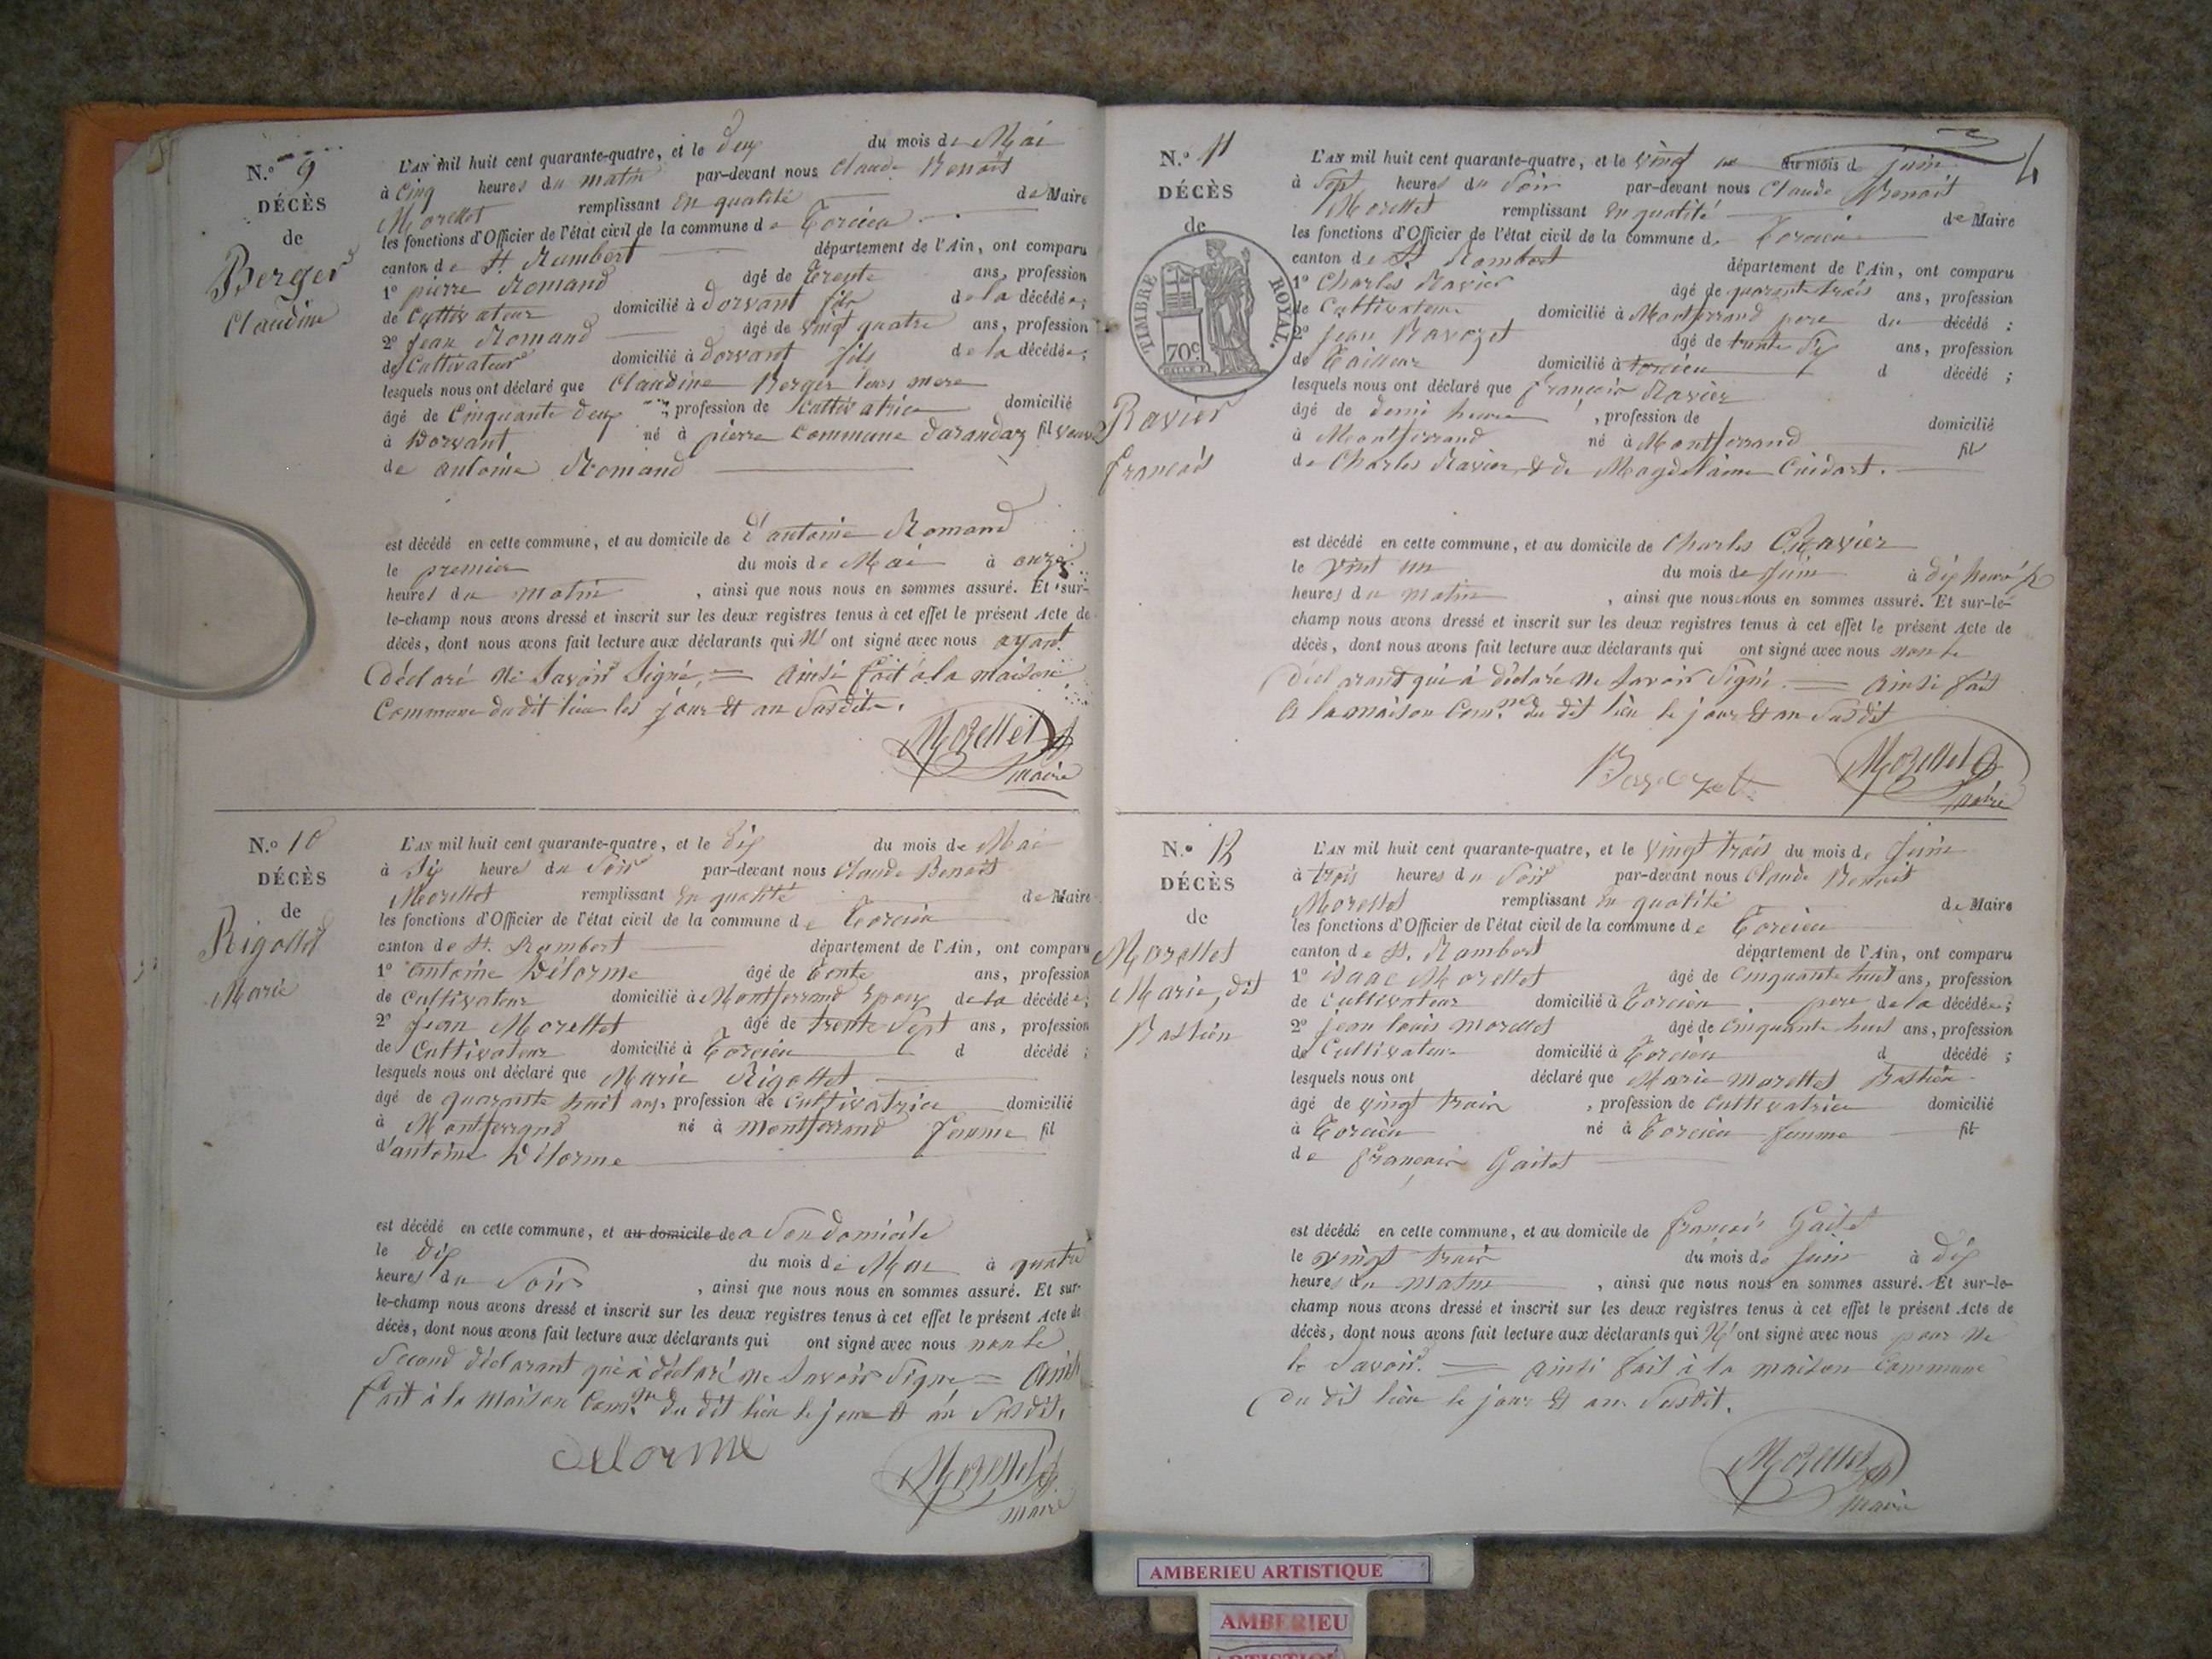 N.° 9
DÉCÈS
de
Berger
Claudine
L'AN mil huit cent quarante-quatre, et le deux du mois de Mai
à cinq heures du matin par-devant nous Claude Benoit
Morellet remplissant en qualité de Maire
les fonctions d'Officier de l'état civil de la commune de Torcieu
canton de St. Rambert département de l'Ain, ont comparu
1° pierre Romand âgé de trente ans, profession
de Cultivateur domicilié à dorvant fils de la décédée;
2° Jean Romand âgé de vingt quatre ans, profession
de Cultivateur domicilié à dorvant fils de la décédée;
lesquels nous ont déclaré que Claudine Berger leurs mere
âgé de cinquante deux, profession de Cultivatrice domicilié
à Dorvant né à pierre Commune darandaz fil veuve
de antoine Romand
est décédé en cette commune, et au domicile de d'antoine Romand
le premier du mois de Mai à onze
heures du matin, ainsi que nous nous en sommes assuré. Et sur-
le-champ nous avons dressé et inscrit sur les deux registres tenus à cet effet le présent Acte de
décès, dont nous avons fait lecture aux déclarants qui N' ont signé avec nous ayant
Déclaré ne Savoir Signé, = ainsi fait à la maison
Commune du dit lieu les jour et an Susdits.
Morellet
maire
N.° 10
DÉCÈS
de
Rigollet
Marie
L'AN mil huit cent quarante-quatre, et le dix du mois de Mai
à Six heures du Soir par-devant nous Claude Benoit
Morellet remplissant en qualité de Maire
les fonctions d'Officier de l'état civil de la commune de Torcieu
canton de St. Rambert département de l'Ain, ont comparu
1° antoine Délorme âgé de ans, profession
de Cultivateur domicilié à Montferrand Epoux de la décédée;
2° jean Morellet âgé de trente Sept ans, profession
de Cultivateur domicilié à Torcieu d décédé;
lesquels nous ont déclaré que Marie Rigollet
âgé de quarante huit ans, profession de Cultivatrice domicilié
à Montferrand né à montferrand femme fil
d'antoine Délorme
est décédé en cette commune, et au domicile de a Son domicile
le dix du mois de Mai à quatre
heures du Soir, ainsi que nous nous en sommes assuré. Et sur-
le-champ nous avons dressé et inscrit sur les deux registres tenus à cet effet le présent Acte de
décès, dont nous avons fait lecture aux déclarants qui ont signé avec nous non le
Second déclarant qui à déclaré ne Savoir Signé = ainsi
fait à la Maison Com.ne du dit lieu le jour et an Susdit.
Delorme
Morellet
maire
4
N.° 11
DÉCÈS
de
TIMBRE ROYAL.
70c
Ravier
francois
L'AN mil huit cent quarante-quatre, et le vingt un du mois de juin
à Sept heures du Soir par-devant nous Claude Benoit
Morellet remplissant en qualité de Maire
les fonctions d'Officier de l'état civil de la commune de Torcieu
canton de St. Rambert département de l'Ain, ont comparu
1° Charles Ravier âgé de quarante trois ans, profession
de Cultivateur domicilié à Montferrand pere du décédé;
2° jean âgé de trente Six ans, profession
de Tailleur domicilié à torcieu d décédé;
lesquels nous ont déclaré que françois Ravier
âgé de demi heure, profession de domicilié
à Montferrand né à Montferrand fil
de Charles Ravier & de Magdelaine Cuidart.
est décédé en cette commune, et au domicile de Charles Ravier
le vint un du mois de Juin à dix heure ½
heures du matin, ainsi que nous nous en sommes assuré. Et sur-le-
champ nous avons dressé et inscrit sur les deux registres tenus à cet effet le présent Acte de
décès, dont nous avons fait lecture aux déclarants qui ont signé avec nous non le
décl arant qui à déclaré ne Savoir Signé. = ainsi fait
a la maison Com.ne du dit lieu le jour & an Susdit
Morellet
maire
N.° 12
DÉCÈS
de
Morellet
Marie, dit
Bastien
L'AN mil huit cent quarante-quatre, et le vingt trois du mois de Juin
à trois heures du Soir par-devant nous Claude Benoit
Morellet remplissant en qualité de Maire
les fonctions d'Officier de l'état civil de la commune de Torcieu
canton de St. Rambert département de l'Ain, ont comparu
1° isaac Morellet âgé de cinquante huit ans, profession
de Cultivateur domicilié à Torcieu pere de la décédée;
2° jean louis morellet âgé de cinquante huit ans, profession
de Cultivateur domicilié à Torcieu d décédé;
lesquels nous ont déclaré que Marie Morellet Bastien
âgé de vingt trois, profession de Cultivatrice domicilié
à Torcieu né à Torcieu femme fil
de françois Gaitet
est décédé en cette commune, et au domicile de françois Gaitet
le vingt trois du mois de Juin à dix
heures du Matin, ainsi que nous nous en sommes assuré. Et sur-le-
champ nous avons dressé et inscrit sur les deux registres tenus à cet effet le présent Acte de
décès, dont nous avons fait lecture aux déclarants qui N' ont signé avec nous pour ne
le Savoir. = ainsi fait à la maison Commune
du dit lieu le jour & an Susdit.
Morellet
maire
AMBERIEU ARTISTIQUE
AMBERIEU
ARTISTIQUE